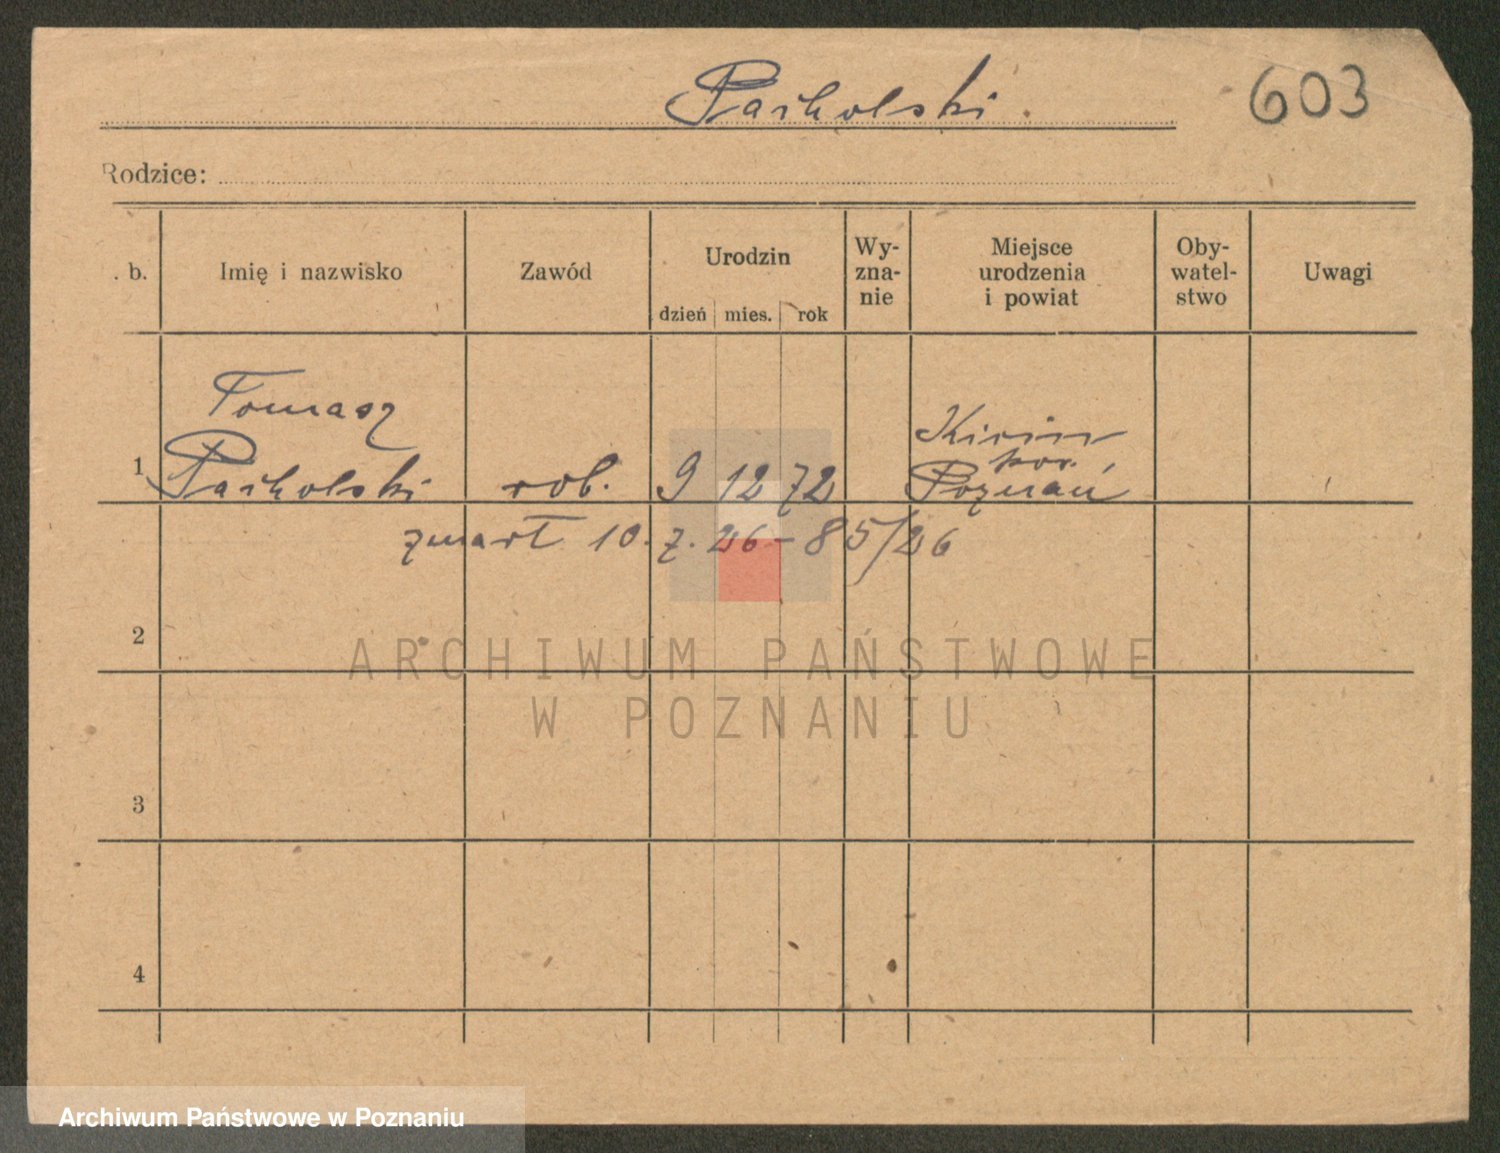 Pacholski.
603
Rodzice:
. b.
Imię i nazwisko
Zawód
Urodzin
dzień mies. rok
Wy-
zna-
nie
Miejsce
urodzenia
i powiat
Oby-
watel-
stwo
Uwagi
Tomasz
1 Pacholski rob. 9 12 72
pow.
Poznań
zmarł 10. 7. 26 – 85/26
2
ARCHIWUM PAŃSTWOWE
W POZNANIU
3
4
Archiwum Państwowe w Poznaniu